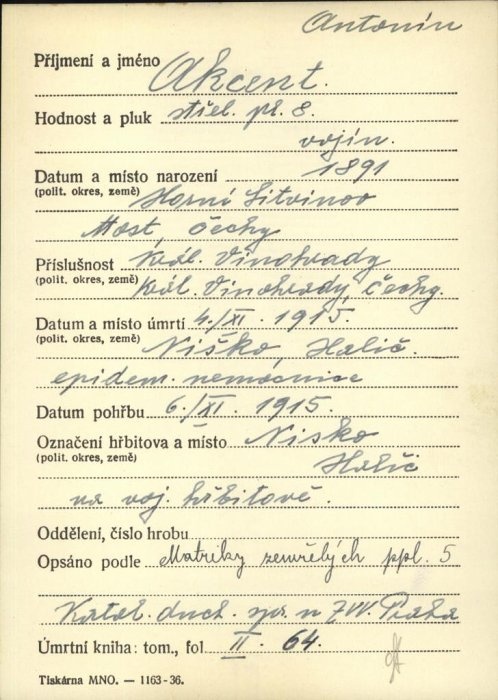 Antonín
Příjmení a jméno Akcent.
Hodnost a pluk střel. pl. 8.
vojín.
Datum a místo narození 1891
(polit. okres, země) Horní Litvínov
Most, Čechy
Příslušnost Král. Vinohrady
(polit. okres, země) Král. Vinohrady, Čechy.
Datum a místo úmrtí 4./XI. 1915.
(polit. okres, země) Niško, Halič.
epidem. nemocnice
Datum pohřbu 6./XI. 1915.
Označení hřbitova a místo Nisko
(polit. okres, země) Halič
na voj. hřbitově.
Oddělení, číslo hrobu
Opsáno podle Matriky zemřelých ppl. 5
Katol. duch. spr. u ZVV. Praha
Úmrtní kniha: tom., fol II. 64.
Tiskárna MNO. — 1163-36.